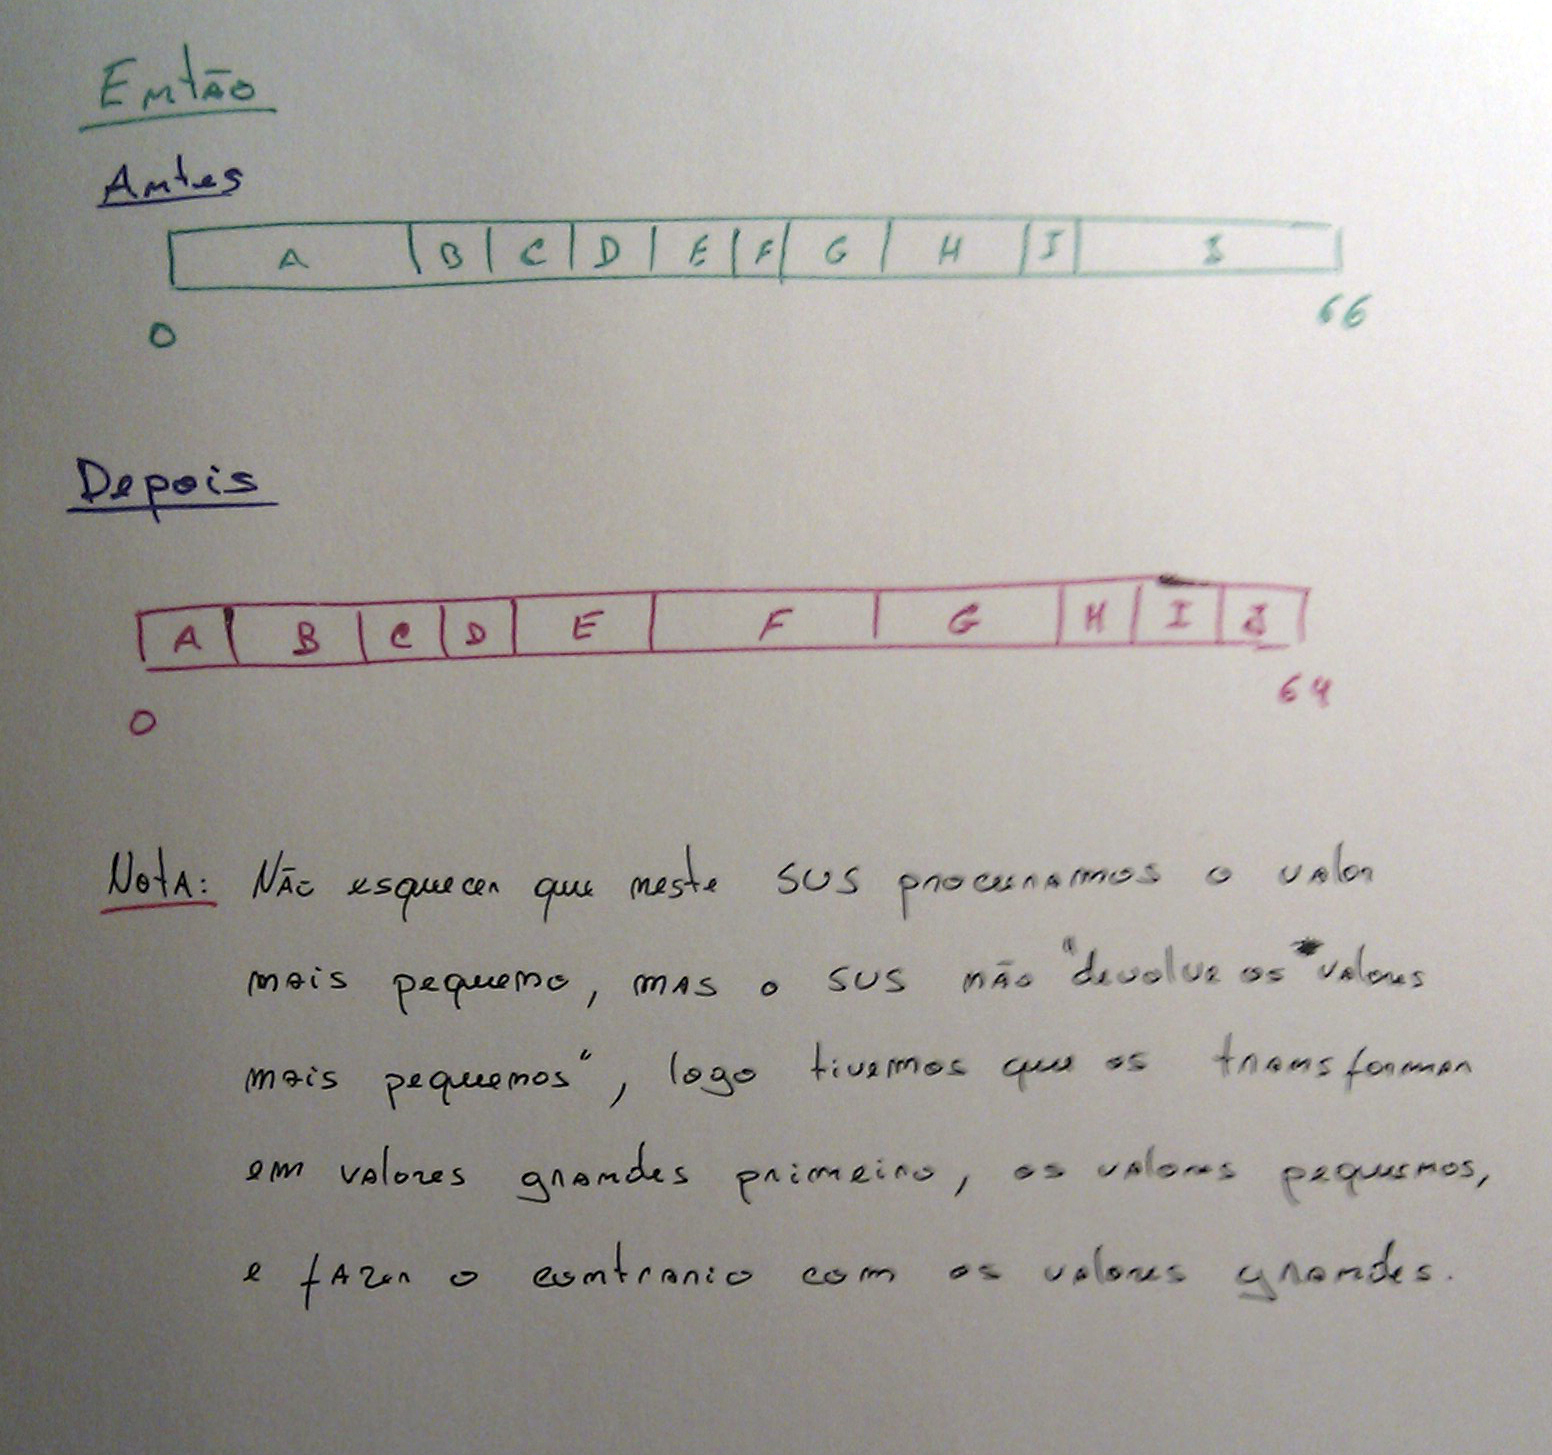 Então
Antes
A B C D E F G H I J
0 66
Depois
A B C D E F G H I J
0 64
Nota: Não esquecer que neste SUS procuramos o valor
mais pequeno, mas o SUS não "devolve os valores
mais pequenos", logo tivemos que os transformar
em valores grandes primeiro, os valores pequenos,
e fazer o contrario com os valores grandes.